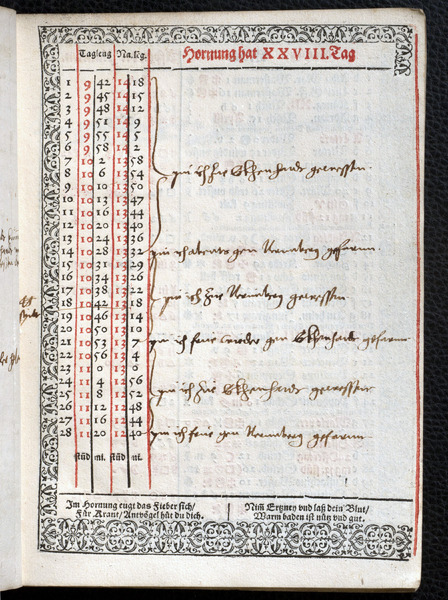 Tagleng Na.leg. Hornung hat XXVIII. Tag
1 9 42 14 18
2 9 45 14 15
3 9 48 14 12
4 9 51 14 9
5 9 55 14 5
6 9 58 14 2
7 10 2 13 58
8 10 6 13 54 pin ich hie gewessen
9 10 10 13 50
10 10 13 13 47
11 10 16 13 44
12 10 20 13 40
13 10 24 13 36
14 10 28 13 32 pin ich abents gen Nurmberg gefarnn
15 10 31 13 29
16 10 34 13 26
17 10 38 13 22
18 10 42 13 18 pin ich hie Nurmberg gewessen
19 10 46 13 14
20 10 50 13 10
21 10 53 13 7 pin ich frue wider gen gefarnn
22 10 56 13 4
23 11 0 13 0
24 11 4 12 56
25 11 8 12 52 pin ich hie gewessen
26 11 12 12 48
27 11 16 12 44
28 11 20 12 40 pin ich frue gen Nurmberg gefarnn
stūd mi. stūd mi.
Im Hornung eugt das Fieber sich/
Für Krant/ Antvögel hüt du dich.
Nim̃ Ertzney vnd laß dein Blut/
Warm baden ist nütz vnd gut.